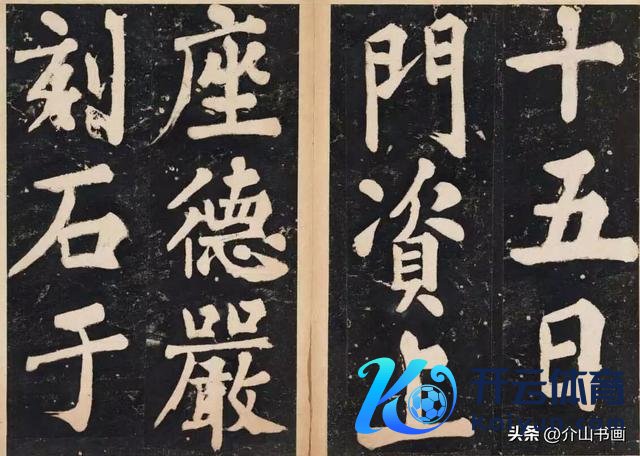 十五日
門資上
座德嚴
刻石于
开云体育
头条@介山书画